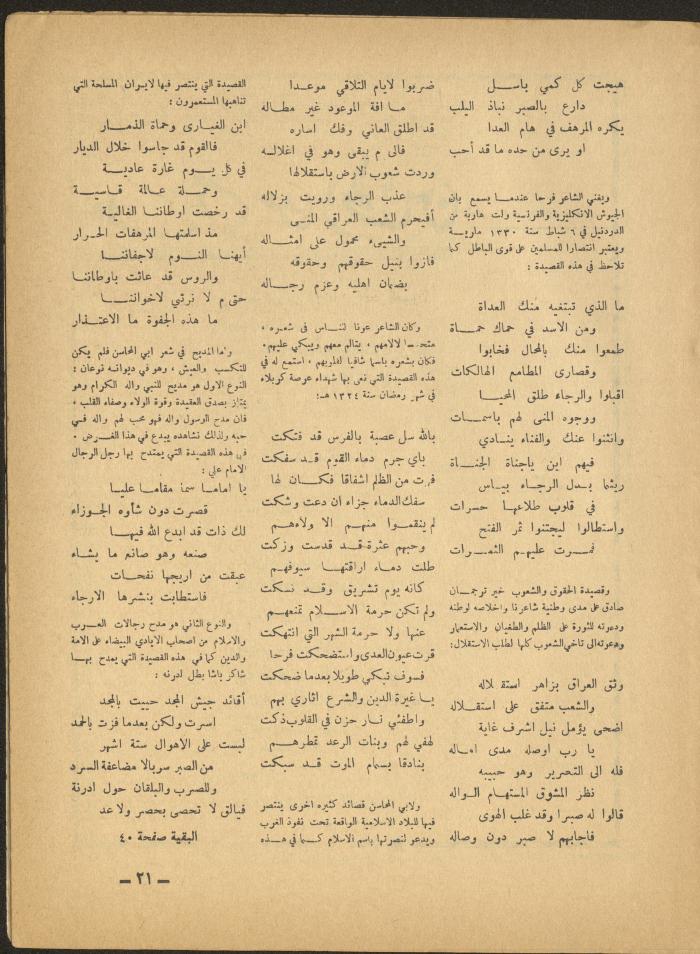 هيجت كل كمي باسل
دارع بالصبر نباذ اليلب
يكره المرهف في هام العدا
او يرى من حده ما قد أحب
ويغني الشاعر فرحا عندما يسمع بان
الجيوش الانكليزية والفرنسية ولت هاربة من
الدردنيل في ٦ شباط سنة ١٣٣٠ مارية
ويعتبر انتصارا للمسلمين على قوى الباطل كما
تلاحظ في هذه القصيدة :
ما الذي تبتغيه منك العداة
ومن الاسد في حماك حماة
طمعوا منك بالمحال فخابوا
وقصارى المطامع الهالكات
اقبلوا والرجاء طلق المحيا
ووجوه المنى لهم باسمات
وانثنوا عنك والفناء ينادي
فيهم اين ياجناة الجناة
ريثما بدل الرجاء بياس
في قلوب طلاعها حسرات
واستطالوا ليجتنوا ثمر الفتح
فمرت عليهم الثمرات
وقصيدة الحقوق والشعوب خير ترجمان
صادق على مدى وطنية شاعرنا واخلاصه لوطنه
ودعوته للثورة على الظلم والطغيان والاستعمار
وهدعوته الى تاخي الشعوب كلها لطلب الاستقلال:
وثق العراق بزاهر استقلاله
والشعب متفق على استقلاله
اضحى يؤمل نيل اشرف غاية
يا رب اوصله مدى اماله
فله الى التحرير وهو حبيبه
نظر المشوق المستهام الواله
قالوا له صبرا وقد غلب الهوى
فاجابهم لا صبر دون وصاله
ضربوا لايام التلاقي موعدا
ما افة الموعود غير مطاله
قد اطلق العاني وفك اساره
فالى م يبقى وهو في اغلاله
وردت شعوب الارض باستقلالها
عذب الرجاء ورويت بزلاله
أفيحرم الشعب العراقي المنى
والشيىء محمول على امثاله
فازوا بنيل حقوقهم وحقوقه
بضمان اهليه وعزم رجاله
وكان الشاعر عونا للناس في شعره ،
متحسسا لالامهم ، يتالم معهم ويبكي عليهم.
فكان بشعره باسما شافيا لقلوبهم ، استمع له في
هذه القصيدة التي نعى بها شهداء عوصة كربلاء
في شهر رمضان سنة ١٣٢٤ هـ:
بالله سل عصبة بالفرس قد فتكت
باي جرم دماء القوم قد سفكت
فرت من الظلم اشفاقا فكان لها
سفك الدماء جزاء ان دعت وشكت
لم ينقموا منهم الا ولاءهم
وحبهم عثرة قد قدست وزكت
طلت دماء اراقتها سيوفهم
كانه يوم تشريق وقد نسكت
ولم تكن حرمة الاسلام تمنعهم
عنها ولا حرمة الشهر التي انتهكت
قرت عيون العدى واستضحكت فرحا
فسوف تبكي طويلا بعدما ضحكت
يا غيرة الدين والشرع اثاري بهم
واطفئي نار حزن في القلوب ذكت
لهفي لهم وبنات الرعد تمطرهم
بنادقا بسمام الموت قد سبكت
ولابي المحاسن قصائد كثيره اخرى ينتصر
فيها للبلاد الاسلامية الواقعة تحت نفوذ الغرب
ويدعو لنصرتها باسم الاسلام كما في هذه
القصيدة التي ينتصر فيها لايران المسلحة التي
تناهبها المستعمرون :
اين الغيارى وحماة الذمار
فالقوم قد جاسوا خلال الديار
في كل يوم غارة عادية
وحملة عالمة قاسية
قد رخصت اوطاننا الغالية
مذ اسلمتها المرهفات الحرار
أيهنا النوم لاجفاننا
والروس قد عاثت باوطاننا
حتى م لا نرثي لاخواننا
ما هذه الجفوة ما الاعتذار
واما المديح في شعر ابي المحاسن فلم يكن
للتكسب والعيش ، وهو في ديوانه نوعان :
النوع الاول هو مديح للنبي واله الكرام وهو
يمتاز بصدق العقيدة وقوة الولاء وصفاء القلب ،
فان مدح الرسول واله فهو محب لهم واله في
حبه ولذلك نشاهده يبدع في هذا الغرض .
في هذه القصيدة التي يمتدح بها رجل الرجال
الامام علي :
يا اماما سما مقاما عليا
قصرت دون شأوه الجوزاء
لك ذات قد ابدع الله فيها
صنعه وهو صانع ما يشاء
عبقت من اريجها نفحات
فاستطابت بنشرها الارجاء
والنوع الثاني هو مدح رجالات العرب
والاسلام من اصحاب الايادي البيضاء على الامة
والدين كما في هذه القصيدة التي يمدح بها
شاكر باشا بطل ادرنه :
أقائد جيش المجد حييت بالمجد
اسرت ولكن بعدما فزت بالحمد
لبست على الاهوال ستة اشهر
من الصبر سربالا مضاعفة السرد
وللصرب والبلقان حول ادرنة
فيالق لا تحصى بحصر ولا عد
البقية صفحة ٤٠
– ٢١ –